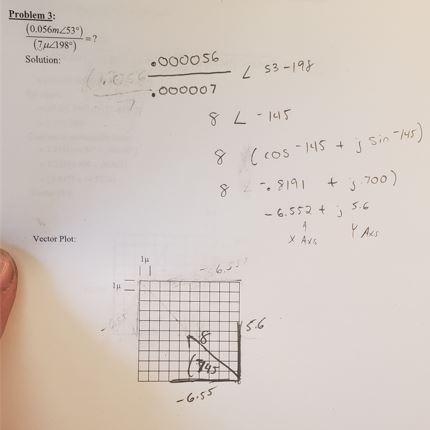 Problem 3:
(0.056m∠53°)
(7μ∠198°) =?
Solution:
.000056
.000007 ∠ 53-198
8 ∠ -145
8 (cos -145 + j sin -145)
8 -.8191 + j .700)
-6.552 + j 5.6
X Axs Y Axs
Vector Plot:
1μ
-6.55
1μ
5.6
8
145
-6.55